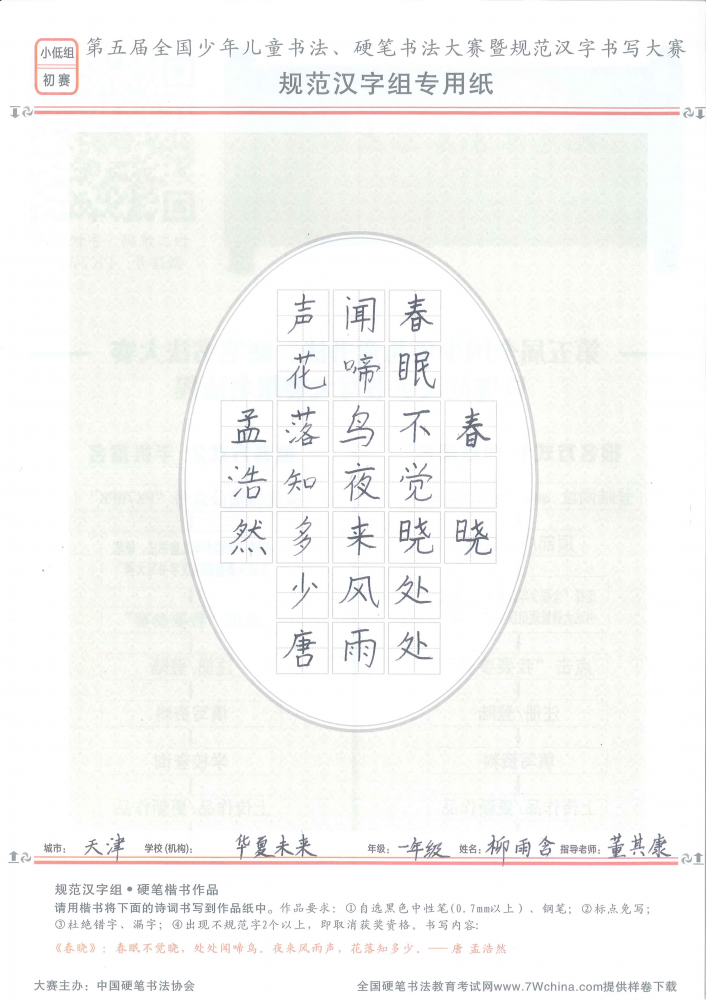 小低组
初赛
第五届全国少年儿童书法、硬笔书法大赛暨规范汉字书写大赛
规范汉字组专用纸
春晓
春眠不觉晓处处
闻啼鸟夜来风雨
声花落知多少唐
孟浩然
城市：天津 学校(机构)：华夏未来 年级：一年级 姓名：柳雨含 指导老师：董其康
规范汉字组•硬笔楷书作品
请用楷书将下面的诗词书写到作品纸中。作品要求：①自选黑色中性笔(0.7mm以上)、钢笔；②标点免写；
③杜绝错字、漏字；④出现不规范字2个以上，即取消获奖资格。书写内容：
《春晓》：春眠不觉晓，处处闻啼鸟。夜来风雨声，花落知多少。——唐 孟浩然
大赛主办：中国硬笔书法协会 全国硬笔书法教育考试网www.7Wchina.com提供样卷下载